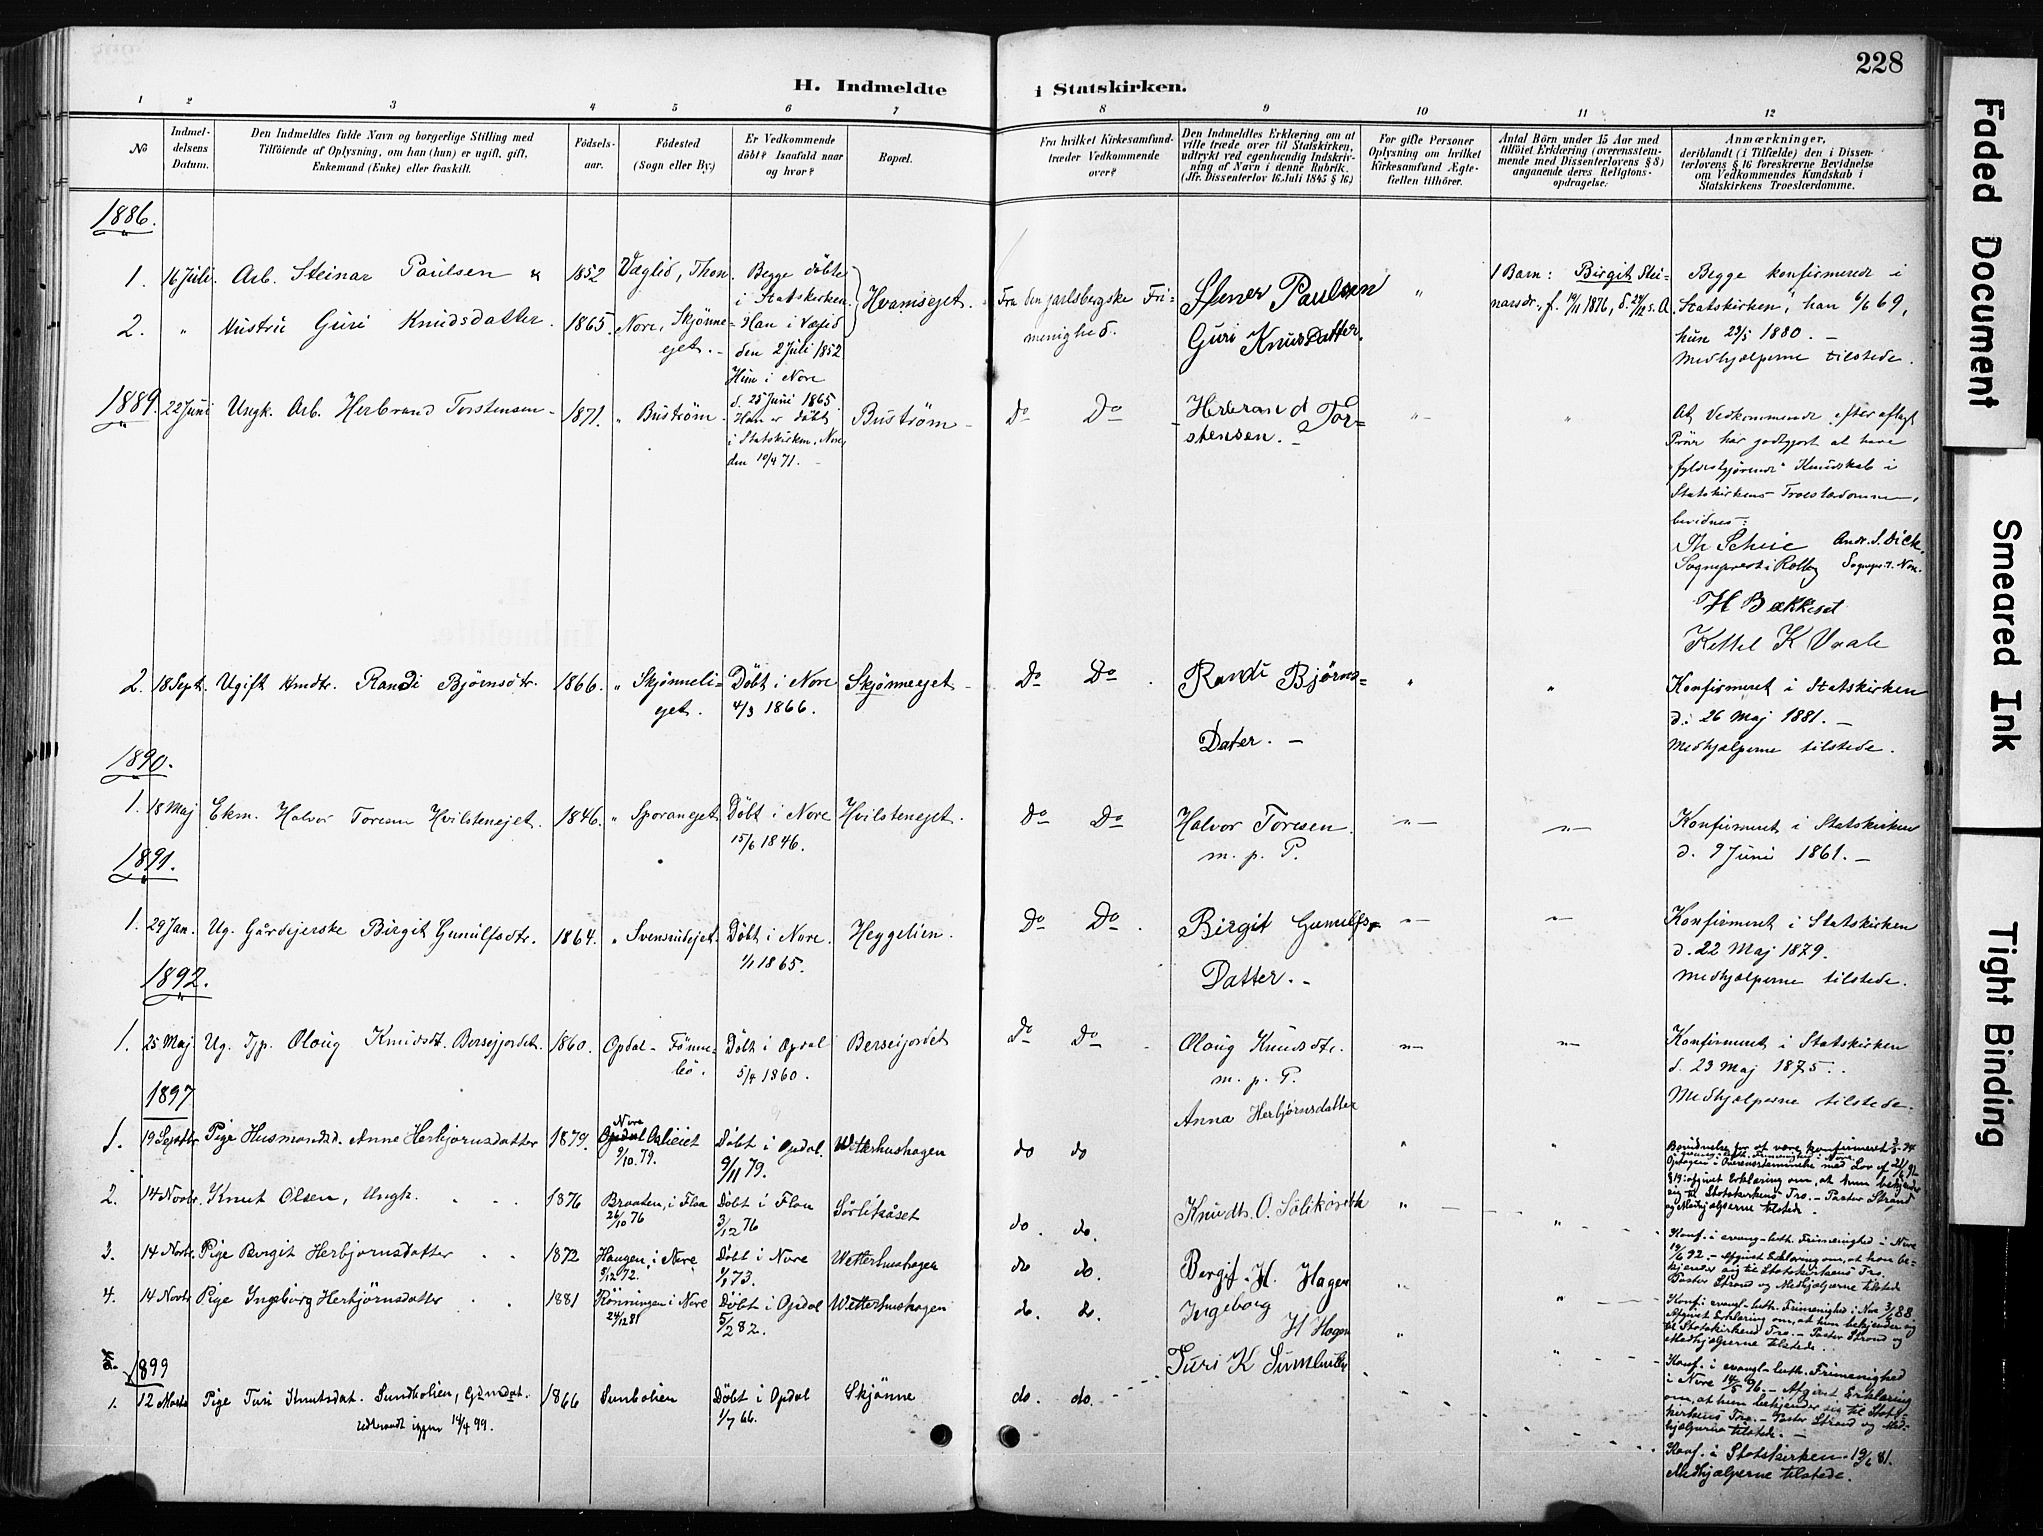 228
H. Indmeldte i Statskirken.
1 2 3 4 5 6 7 8 9 10 11 12
No
Indmeldelsens Datum.
Den Indmeldtes fulde Navn og borgerlige Stilling med
Tilföiende af Oplysning, om han (hun) er ugift, gift,
Enkemand (Enke) eller fraskilt.
Födselsaar.
Födested
(Sogn eller By.)
Er Vedkommende
döbt? Isaafald naar
og hvor?
Bopæl.
Fra hvilket Kirkesamfund
træder Vedkommende
over?
Den Indmeldtes Erklæring om at
ville træde over til Statskirken,
udtrykt ved egenhændig Indskrivning af Navn i denne Rubrik.
(Jfr. Dissenterlov 16 Juli 1845 § 16.)
For gifte Personer
Oplysning om hvilket
Kirkesamfund Ægtefællen tilhörer.
Antal Börn under 15 Aar med
tilföiet Erklæring (overensstemmende med Dissenterlovens § 8)
angaaende deres Religionsopdragelse.
Anmærkninger,
deriblandt (i Tilfælde) den i Dissenterlovens § 16 foreskrevne Bevidnelse
om Vedkommendes Kundskab i
Statskirkens Troeslærdomme.
1886.
1. 16 Juli. Arb. Steinar Paulsen & 1852 Væglid, Thon. Begge döbte i Statskirken. Han i Væglid den 2 Juli 1852 Hvamsejet. Fra den jarlsbergske Frimenighed. Stener Paulsen " 1 Barn: Birgit Steinarsdr., f. 1876, Begge konfirmerede i Statskirken, han 69,
2. " Hustru Guri Knudsdatter. 1865. Nore, Skjönneejet. Hun i Nore d. 25 Juni 1865 Guri KnudsDatter. hun 23/5 1880. – Medhjælperne tilstede.
1889.
22 Juni Ungk. Arb. Herbrand Torstensen 1871. " Buström. Han er döbt i Statskirken, Nore, den 10/4 71. Buström Do Do Herbrand Torstensen. " " At Vedkommende efter aflagt Pröve har godtgjort at have fyldestgjörende Kundskab i Statskirkens Troeslærdomme, bevidnes:
Th Scheie Andr. S. Dick.
Sogneprest i Rollag Sognepr. i Nore.
H Bækkeset
Kittel K Vrale
2. 18 Sept. Ugift Hmdtr. Randi Björnsdtr. 1866. " Skjönneliejet. Döbt i Nore 4/3 1866. Skjönneejet Do Do Randi BjörnsDater. – " " Konfirmeret i Statskirken d. 26 Maj 1881. – Medhjælperne tilstede.
1890.
1. 18 Maj Ekm. Halvor Toresen Hvilstenejet. 1846. " Sporanejet Döbt i Nore 15/6 1846. Hvilstenejet. Do Do Halvor Toresen. m. p. P. " " Konfirmeret i Statskirken d. 9 Juni 1861. –
1891.
1. 29 Jan. Ug. Gårdejerske Birgit Gunulfsdtr. 1864. " Svensrudejet. Döbt i Nore. 1/1 1865. Heggelien. Do Do Birgit GunulfsDatter. – " " Konfirmeret i Statskirken d. 22 Maj 1879. Medhjælperne tilstede.
1892.
1. 25 Maj Ug. Tjp. Oloug Knudsdt. Bersejjordet. 1860. Opdal – Fönnebö. Döbt i Opdal 5/4 1860. Bersejjordet Do Do Oloug Knudsdtr. m. p. P. " " Konfirmeret i Statskirken d. 23 Maj 1875. Medhjælperne tilstede.
1897
1. 19 Septbr. Pige Husmandsd. Anne Herbjornsdatter 1879. Nore Opdal Aslieiet 9/10. 79. Döbt i Opdal. 9/11 79. Wetterhushagen do do Anna Herbjørnsdatter " " Bevidnelse for at være konfirmeret
i evang. luth. Frimenighed i Nore.
Optagen i Overensstemmelse med Lov af
§19: afgivet Erklæring om, at hun bekjender
sig til Statskirkens Tro. – Pastor Strand
og Medhjælperne tilstede.
2. 14 Novbr. Knut Olsen, Ungk. 1876 Braaten, i Flaa 26/10 76 Döbt i Flaa 3/12 76 do. do. Knudt. O. " " Konf. i evang-luth. Frimenighed i Nore
19/6 92. – Afgivet Erklæring om, at han bekjender sig til Statskirkens Tro.
Pastor Strand og Medhjælperne tilstede
3. 14 Novbr. Pige Birgit Herbjornsdatter 1872 Haugen, i Nore 8/12 72. Döbt i Nore 1/1 73. Wetterhushagen do do. Bergit. H. Hagen " Konf. i evang-luth. Frimenighed i Nore 88
Afgivet Erklæring om, at hun bekjender sig
til Statskirkens Tro. – Pastor Strand og
Medhjælperne tilstede.
4. 14 Novbr. Pige Ingeborg Herbjörnsdatter 1881 Rönningen i Nore 24/12 81 Döbt i Opdal 5/2 82. Wetterhushagen do. do. Ingeborg H Hagen " Konf. i evangl-luth. Frimenighed
i Nore 96. – Afgivet Erklæring
om, at hun bekjender sig til Statskirkens Tro. – Pastor Strand og Medhjælperne tilstede. –
1899
1. 12 Marts Pige Turi Knutsdat. Sundbolien, Gdmdat. 1866 Sunbolien Döbt i Opdal 1/7 66. Skjönne do. do. Turi K Konf. i Statskirken. 19/6 81.
Medhjælperne tilstede.
Udmeldt igjen 14/4 99.
Faded Document
Smeared Ink
Tight Binding